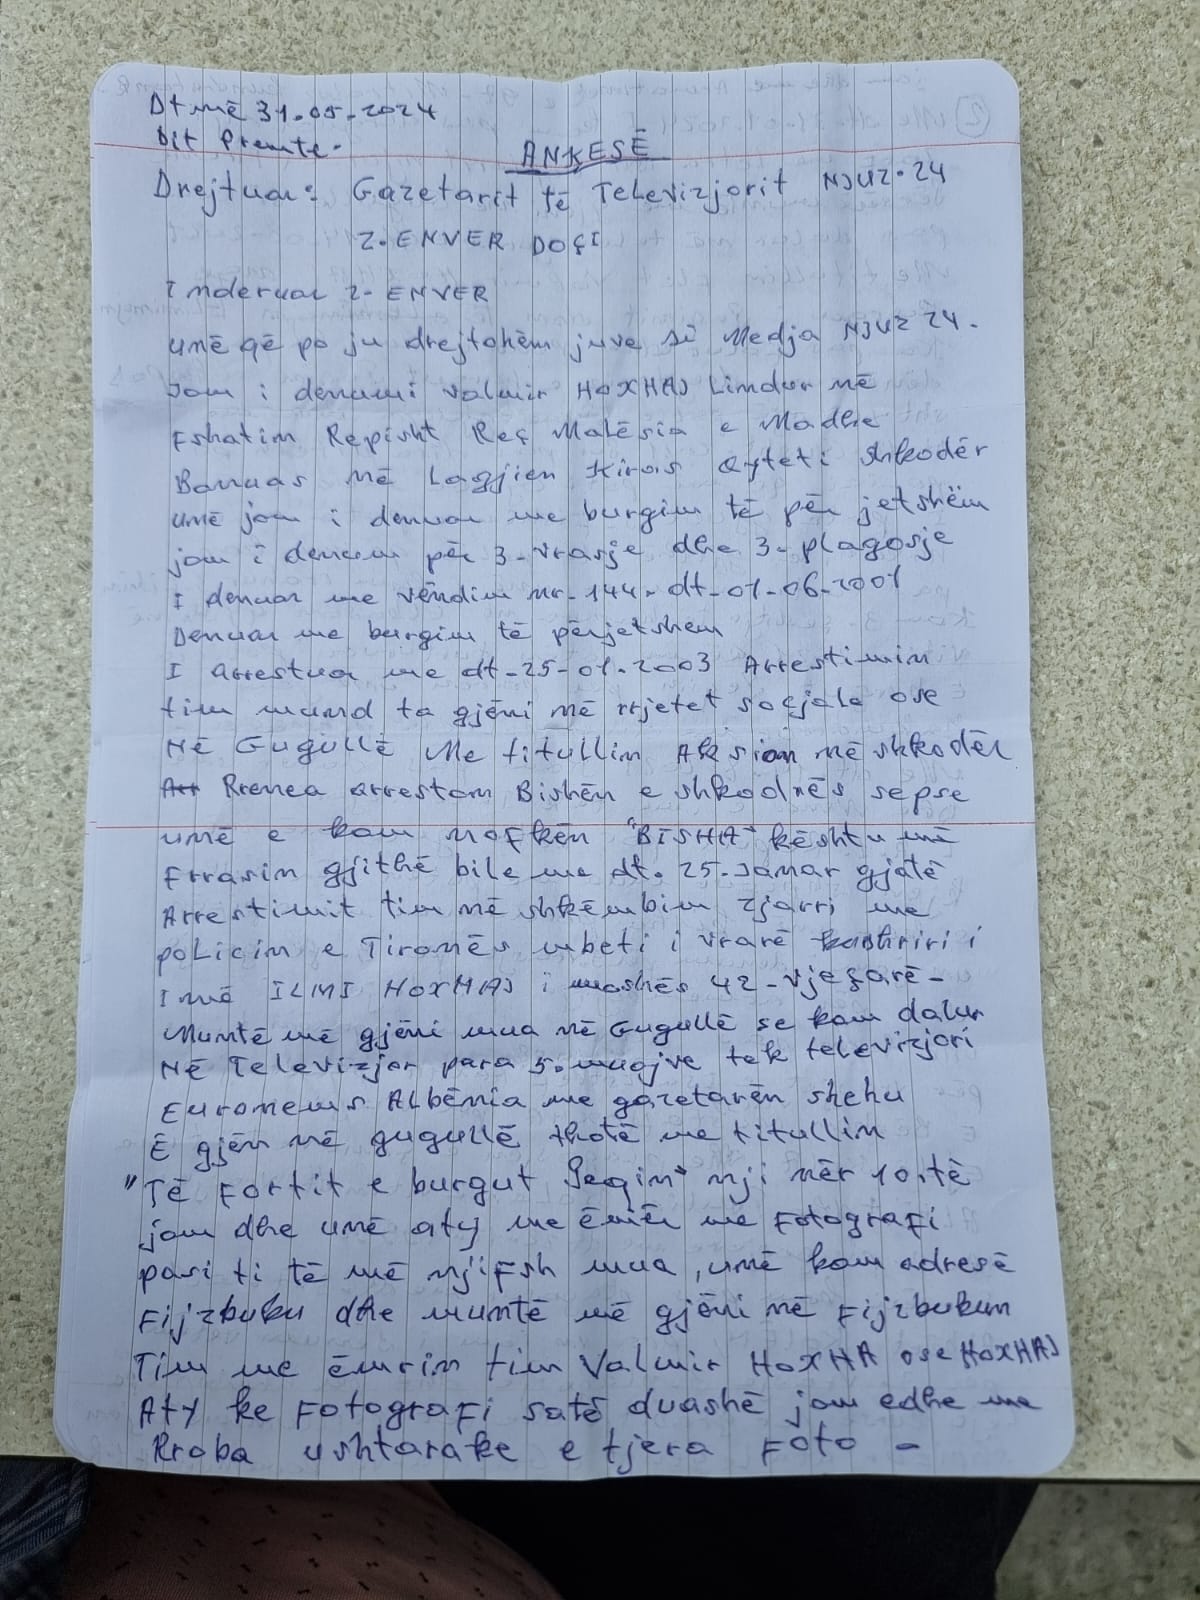 Dt më 31.05-2024
Dit Premte-
ANKESË
Drejtuar: Gazetarit të Televizjorit NJUZ-24
Z-ENVER DOÇI
I nderuar Z- ENVER
Umë që po ju drejtohëm juve si Medja NJUZ 24.
Jam i denumi Valmir HOXHAJ Limdur në
Fshatim Repisht Reç Malësia e Madhe
Banuas në Lagjien Kiras Qyteti Shkodër
umë jam i denuar me burgim të për jetshëm
jam i denum për 3-vrasje dhe 3-plagosje
I denuar me vëndim nr-144-dt-01-06-2001
Denuar me burgim të përjetshem
I arrestua me dt-25-01-2003 Arrestimin
tim mund ta gjëni në rrjetet socjale ose
Në Gugullë Me titullin Aksion në shkodër
Rrenea arrestom Bishën e shkodnës sepse
umë e kam nofkën "BISHA" kështu më
Frrasin gjithë bile me dt. 25-Janar gjatë
Arrestimit tim në shkëmbim zjarri me
policin e Tiranës mbeti i vrarë kushriri i
Imë ILMI HOXHAJ i moshës 42-vjeçarë-
Muntë më gjëni mua në Gugullë se kam dalur
Në Televizjor para 5.muajve tek televizjori
Euronews Albënia me gazetarën shehu
E gjën në gugullë thotë me titullin
"Të Fortit e burgut Peqin" nji nër 10.të
jam dhe umë aty me ëmër me Fotografi
pasi ti të më njifsh mua, umë kam adresë
Fijzbuku dhe muntë më gjëni në Fijzbukun
Tim me ëmrin tim Valmir HOXHA ose HOXHAJ
Aty ke Fotografi satë duashë jam edhe me
Rroba ushtarake e tjera Foto -